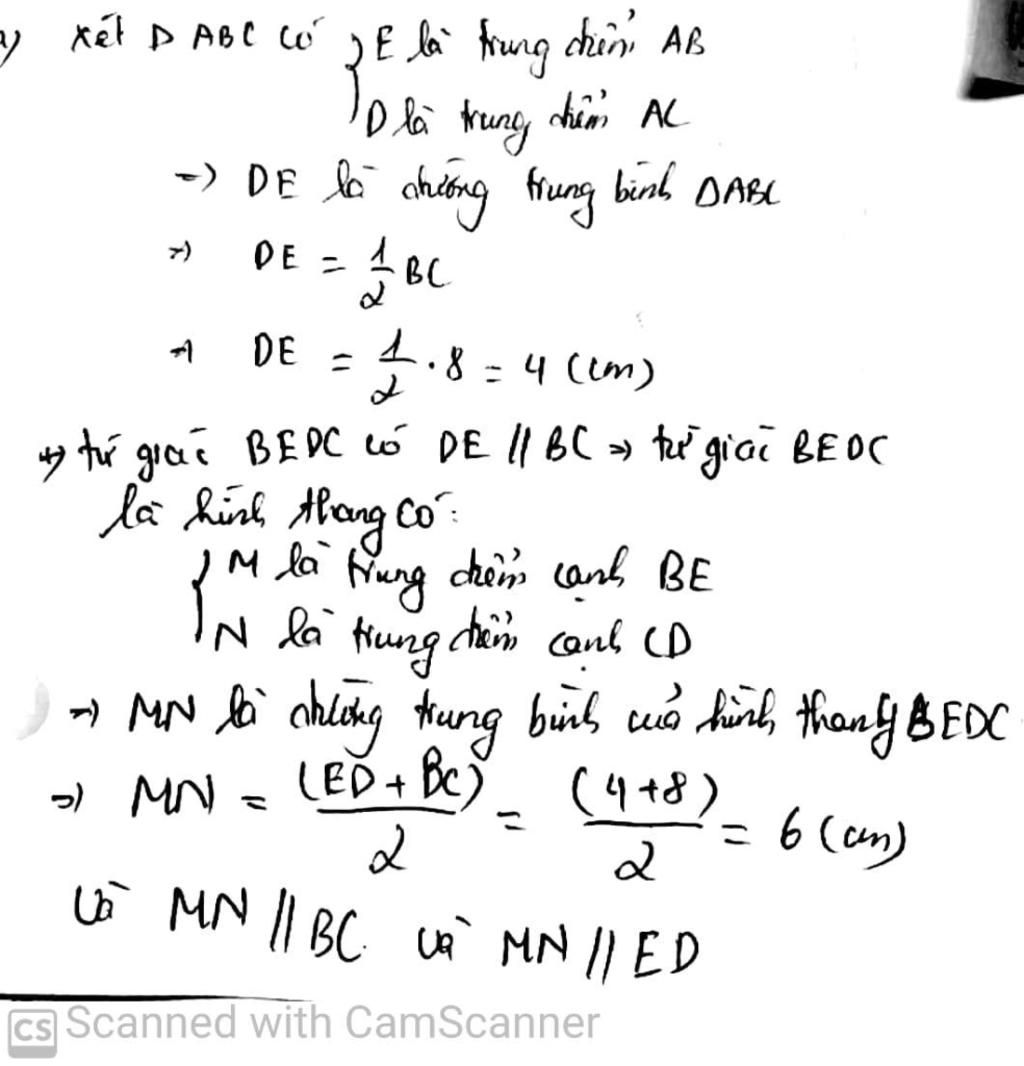 a) Xét Δ ABC có { E là trung điểm AB
D là trung điểm AC
=> DE là đường trung bình ΔABC
=> DE = 1/2 BC
=> DE = 1/2 . 8 = 4 (cm)
=> tứ giác BEDC có DE // BC => tứ giác BEDC
là hình thang có:
{ M là trung điểm cạnh BE
N là trung điểm cạnh CD
=> MN là đường trung bình của hình thang BEDC
=> MN = (ED + BC)/2 = (4+8)/2 = 6 (cm)
Và MN // BC và MN // ED
CS Scanned with CamScanner